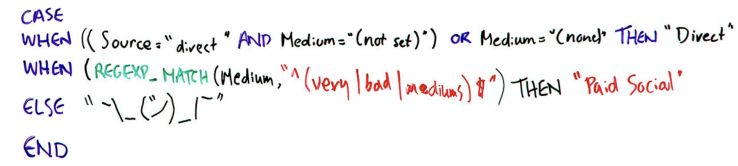 CASE
WHEN ((Source="direct" AND Medium="(not set)") OR Medium="(none)" THEN "Direct"
WHEN (REGEXP_MATCH(Medium,"^(very|bad|mediums)$") THEN "Paid Social"
ELSE "¯\_(ツ)_/¯"
END